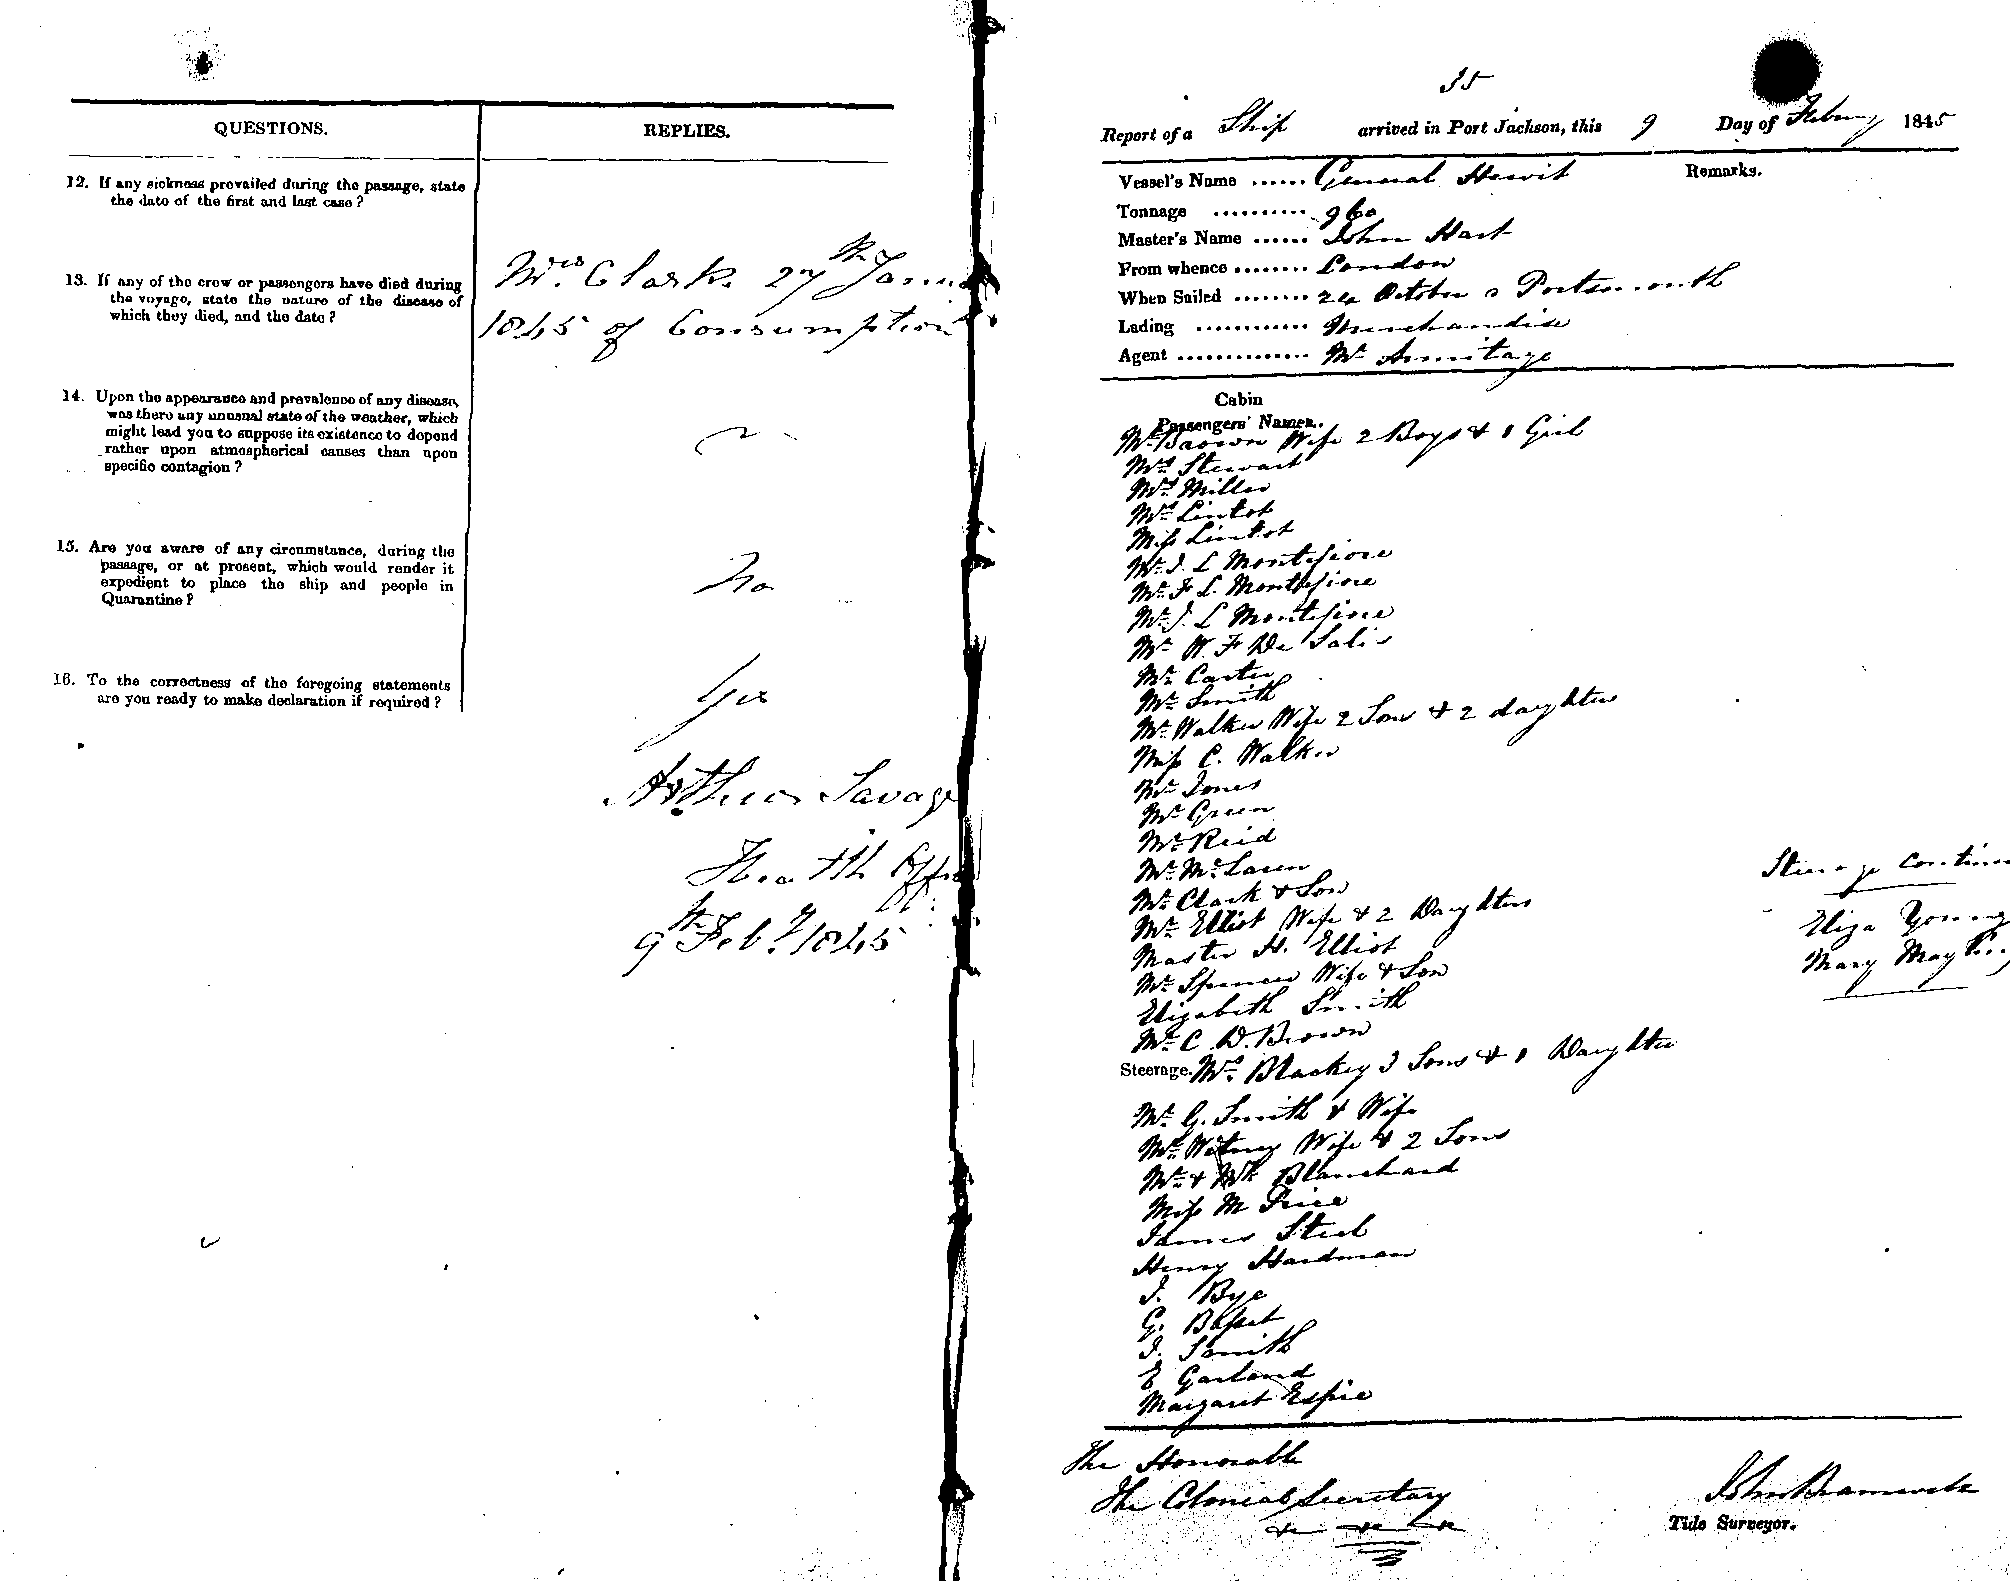 QUESTIONS.
REPLIES.
12. If any sickness prevailed during the passage, state
the date of the first and last case?
13. If any of the crew or passengers have died during
the voyage, state the nature of the disease of
which they died, and the date?
Mrs Clark 27th Janu
1845 of Consumption
14. Upon the appearance and prevalence of any disease,
was there any unusual state of the weather, which
might lead you to suppose its existence to depend
rather upon atmospherical causes than upon
specific contagion?
15. Are you aware of any circumstance, during the
passage, or at present, which would render it
expedient to place the ship and people in
Quarantine?
No
16. To the correctness of the foregoing statements
are you ready to make declaration if required?
Yes
Arthur Savage
Health Offi
9th Feby 1845
35
Report of a Ship arrived in Port Jackson, this 9 Day of Febury 1845
Vessel's Name ...... General Hewit
Remarks.
Tonnage .......... 960
Master's Name ...... John Hart
From whence ........ London
When Sailed ........ 24 October Portsmouth
Lading ............ Merchandise
Agent .............. Mr Armitage
Cabin
Passengers' Names.
Mr Brown Wife 2 Boys & 1 Girl
Mrs Stewart
Mrs Miller
Mrs Lintot
Miss Lintot
Mr J. L Montefiore
Mr F L. Montefiore
Mr J. L Montefiore
Mr W. F De Salis
Mr Carter
Mr Smith
Mr Walker Wife 2 Sons & 2 daughters
Miss C. Walker
Mr Jones
Mr Green
Mr Reid
Mr McLaren
Mr Clark & Son
Mr Elliot Wife & 2 Daughters
Master H. Elliot
Mr Spencer Wife & Son
Elizabeth Smith
Mr C. D. Brown
Steerage. Mrs Blackey 3 Sons & 1 Daughter
Mr G. Smith & Wife
Mr Witney Wife & 2 Sons
Mr & Mrs Blanchard
Miss M Price
James Steel
Henry Hardman
J. Bye
G. Basset
J. Smith
E Garland
Margaret Espie
Steerage Continu
Eliza Young
Mary
The Honorable
The Colonial Secretary
John
Tide Surveyor.